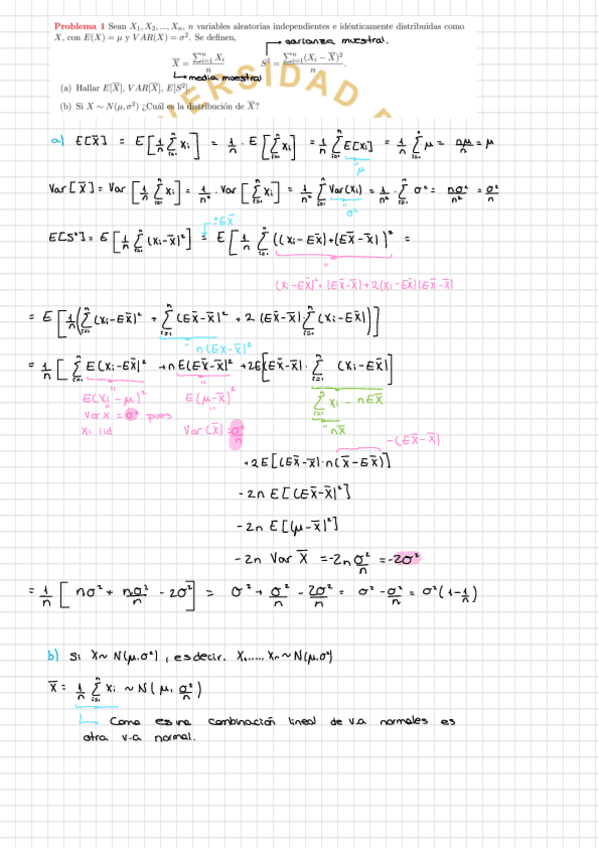 Problema 1 Sean X₁, X₂, ..., Xₙ, n variables aleatorias independientes e idénticamente distribuidas como
X, con E(X) = μ y VAR(X) = σ². Se definen,
varianza muestral.
X̄ = ∑ᵢ₌₁ⁿ Xᵢ / n   S² = ∑ᵢ₌₁ⁿ (Xᵢ − X̄)² / n .
media muestral
(a) Hallar E[X̄], VAR[X̄], E[S²]
(b) Si X ∼ N(μ, σ²) ¿Cuál es la distribución de X̄?
VERSIDAD
a) E[X̄] = E[1/n ∑ᵢ₌₁ⁿ xᵢ] = 1/n · E[∑ᵢ₌₁ⁿ xᵢ] = 1/n ∑ᵢ₌₁ⁿ E[xᵢ] = 1/n ∑ᵢ₌₁ⁿ μ = nμ/n = μ
μ
Var[X̄] = Var[1/n ∑ᵢ₌₁ⁿ xᵢ] = 1/n² · Var[∑ᵢ₌₁ⁿ xᵢ] = 1/n² ∑ᵢ₌₁ⁿ Var(xᵢ) = 1/n² · ∑ᵢ₌₁ⁿ σ² = nσ²/n² = σ²/n
σ²
±EX̄
E[S²] = E[1/n ∑ᵢ₌₁ⁿ (xᵢ-X̄)²] = E[1/n ∑ᵢ₌₁ⁿ ((xᵢ-EX̄)+(EX̄-X̄))² =
(xᵢ-EX̄)²+(EX̄-X̄)²+2(xᵢ-EX̄)(EX̄-X̄)
= E[1/n(∑ᵢ₌₁ⁿ(xᵢ-EX̄)² + ∑ᵢ₌₁ⁿ(EX̄-X̄)² + 2(EX̄-X̄)∑ᵢ₌₁ⁿ(xᵢ-EX̄))]
n(EX̄-X̄)²
= 1/n [∑ᵢ₌₁ⁿ E(xᵢ-EX̄)² + nE(EX̄-X̄)² + 2E[(EX̄-X̄)·∑ᵢ₌₁ⁿ (xᵢ-EX̄)]
E(xᵢ-μ)² E(μ-X̄)² ∑ᵢ₌₁ⁿ xᵢ - nEX̄
Var X = σ² pues
xᵢ iid Var(X̄)=σ²/n nX̄
-(EX̄-X̄)
+2E[(EX̄-X̄)·n(X̄-EX̄)]
-2n E[(EX̄-X̄)²]
-2n E[(μ-X̄)²]
-2n Var X̄ = -2n σ²/n = -2σ²
= 1/n [nσ² + nσ²/n - 2σ²] = σ² + σ²/n - 2σ²/n = σ² - σ²/n = σ²(1-1/n)
b) Si X~N(μ,σ²), es decir. X₁,....,Xₙ~N(μ,σ²)
X̄ = 1/n ∑ᵢ₌₁ⁿ xᵢ ~ N(μ, σ²/n)
Como es una combinación lineal de v.a normales es
otra v.a normal.